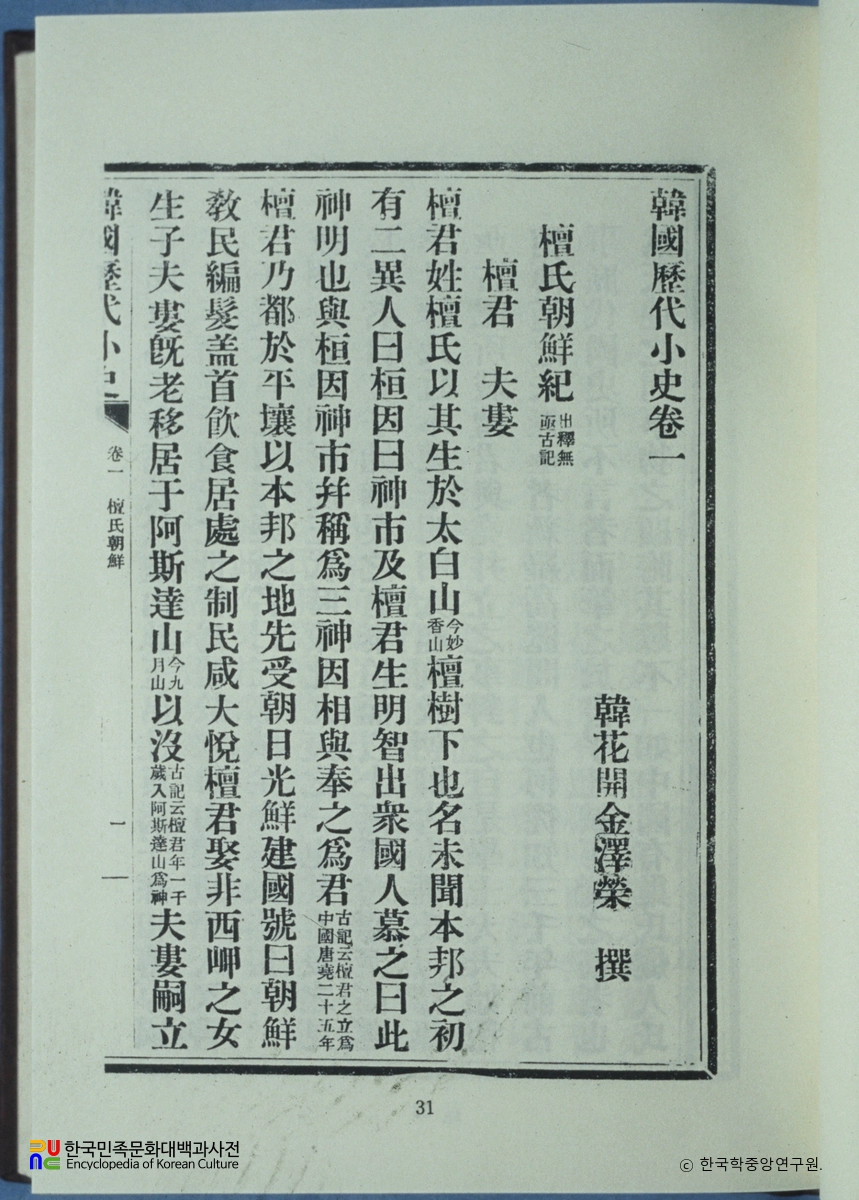 韓國歷代小史卷一
韓花開金澤榮 撰
檀氏朝鮮紀 出釋無亟古記
檀君 夫婁
檀君姓檀氏以其生於太白山今妙香山檀樹下也名未聞本邦之初
有二異人曰桓因曰神市及檀君生明智出衆國人慕之曰此
神明也與桓因神市幷稱爲三神因相與奉之爲君古記云檀君之立爲中國唐堯二十五年
檀君乃都於平壤以本邦之地先受朝日光鮮建國號曰朝鮮
敎民編髮盖首飮食居處之制民咸大悅檀君娶非西岬之女
生子夫婁旣老移居于阿斯達山今九月山以沒古記云檀君年一千歲入阿斯達山爲神夫婁嗣立
韓國歷代小史
卷一 檀氏朝鮮
一
31
한국민족문화대백과사전
Encyclopedia of Korean Culture
© 한국학중앙연구원.